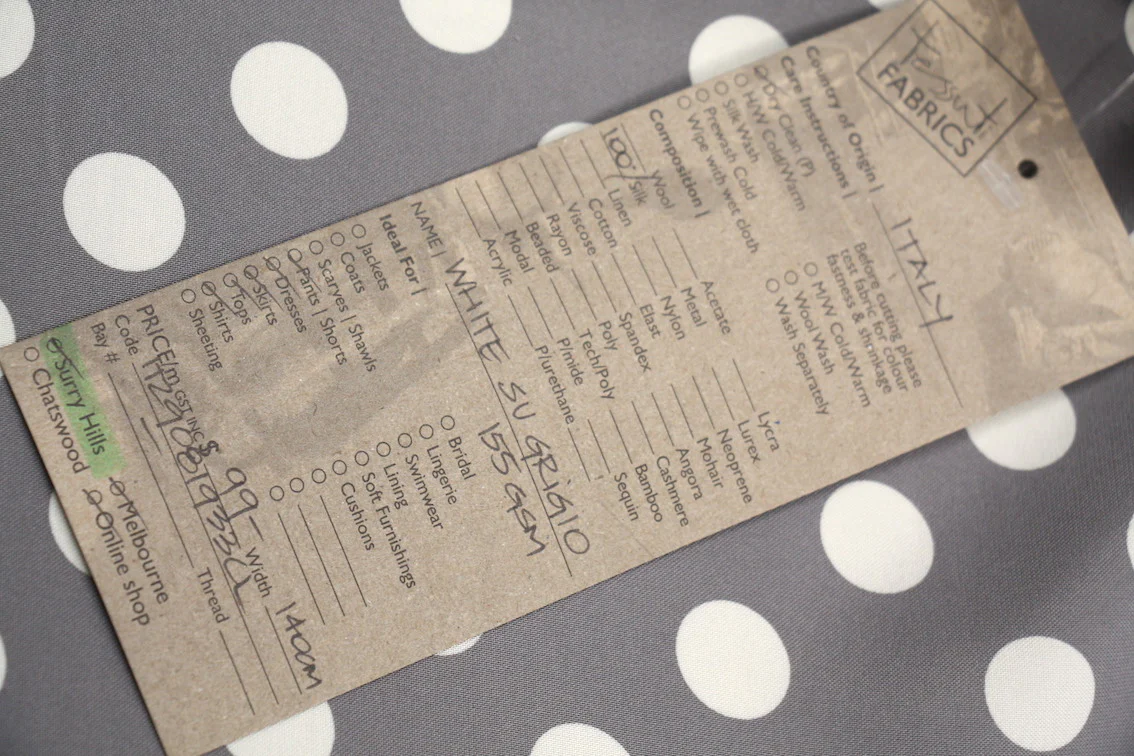 Tessuti
FABRICS
Country of Origin | ITALY
Care Instructions |
Dry Clean (P)
H/W Cold/Warm
Silk Wash
Prewash Cold
Wipe with wet cloth
Before cutting please
test fabric for colour
fastness & shrinkage
M/W Cold/Warm
Wool Wash
Wash Separately
Composition |
Wool
100% Silk
Linen
Cotton
Viscose
Rayon
Beaded
Modal
Acrylic
Acetate
Metal
Nylon
Elast
Spandex
Poly
Tech/Poly
P/mide
P/urethane
Lycra
Lurex
Neoprene
Mohair
Angora
Cashmere
Bamboo
Sequin
NAME | WHITE SU GRIGIO
155 GSM
Ideal For |
Jackets
Coats
Scarves | Shawls
Pants | Shorts
Dresses
Skirts
Tops
Shirts
Sheeting
Bridal
Lingerie
Swimwear
Lining
Soft Furnishings
Cushions
PRICE/m GST INC $ 99- Width 140cm
Code
Bay # Thread
Surry Hills
Melbourne
Chatswood
Online shop